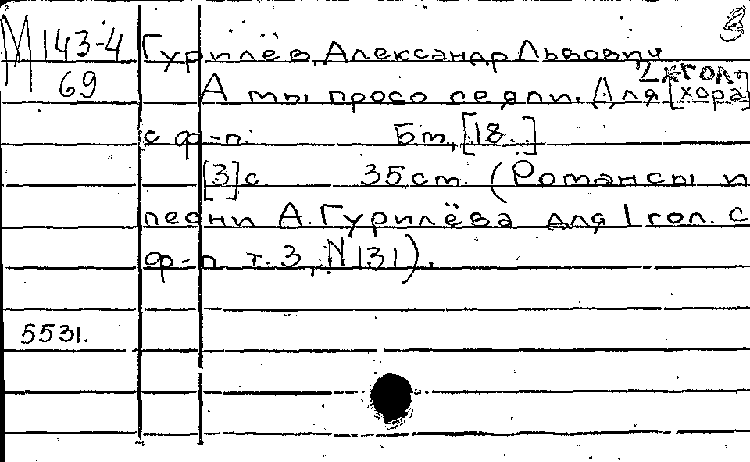 М 143-4
69
Гурилёв, Александр Львович
А мы просо сеяли. Для [хора]
2х гол.
с ф-п. Б.м., [18..]
[3] с. 35 cm. (Романсы и
песни А. Гурилёва для 1 гол. с
ф-п. т. 3, N 131).
5531.